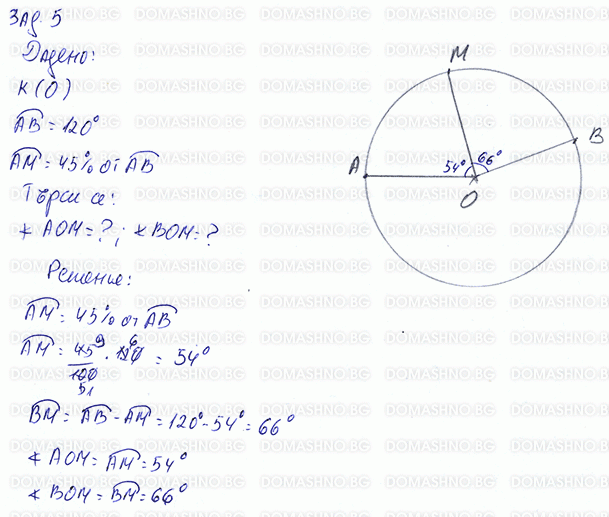 Зад. 5
Дадено:
K (O)
AB = 120°
AM = 45% от AB
Търси се:
∢ AOM = ? ; ∢ BOM = ?
Решение:
AM = 45% от AB
AM = 45 9 / 100 5 1 . 120 6 = 54°
BM = AB - AM = 120° - 54° = 66°
∢ AOM = AM = 54°
∢ BOM = BM = 66°
M
B
A
54° 66°
O
DOMASHNO.BG